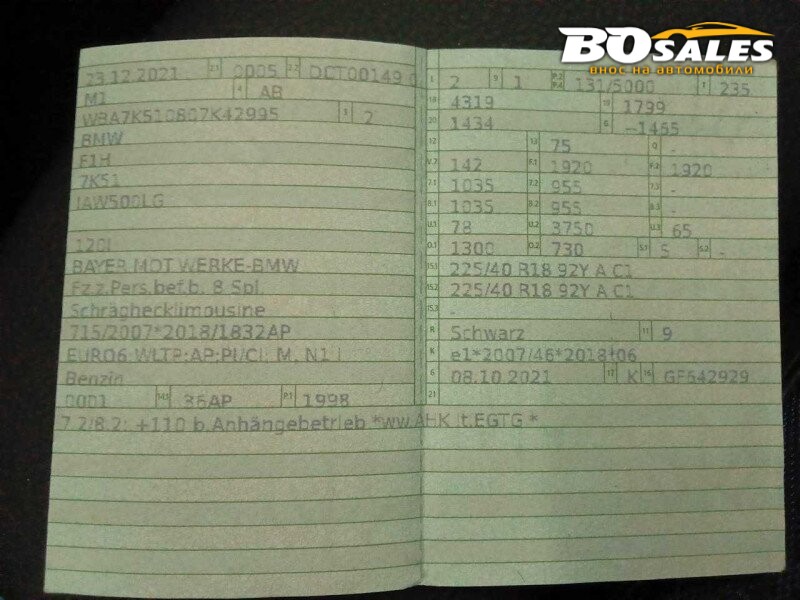 BOSALES
внос на автомобили
23.12.2021 2.1 0005 2.2 DCT00149
M1 4 AB
WBA7K510807K42995 3 2
BMW
F1H
7K51
IAW500LG
120I
BAYER.MOT.WERKE-BMW
Fz.z.Pers.bef.b. 8 Spl.
Schräghecklimousine
715/2007*2018/1832AP
EURO6 WLTP;AP;PI/CI; M, N1 I
Benzin
0001 14.1 36AP P.1 1998
7.2/8.2: +110 b.Anhängebetrieb *ww.AHK lt.EGTG *
1 2 9 1 P.2 P.4 131/5000 T 235
18 4319 19 1799
20 1434 G -1465
12 - 13 75 Q -
V.7 142 F.1 1920 F.2 1920
7.1 1035 7.2 955 7.3 -
8.1 1035 8.2 955 8.3 -
U.1 78 U.2 3750 U.3 65
O.1 1300 O.2 730 S.1 5 S.2 -
15.1 225/40 R18 92Y A C1
15.2 225/40 R18 92Y A C1
15.3 -
R Schwarz 11 9
K e1*2007/46*2018*06
6 08.10.2021 17 K 16 GF642929
21